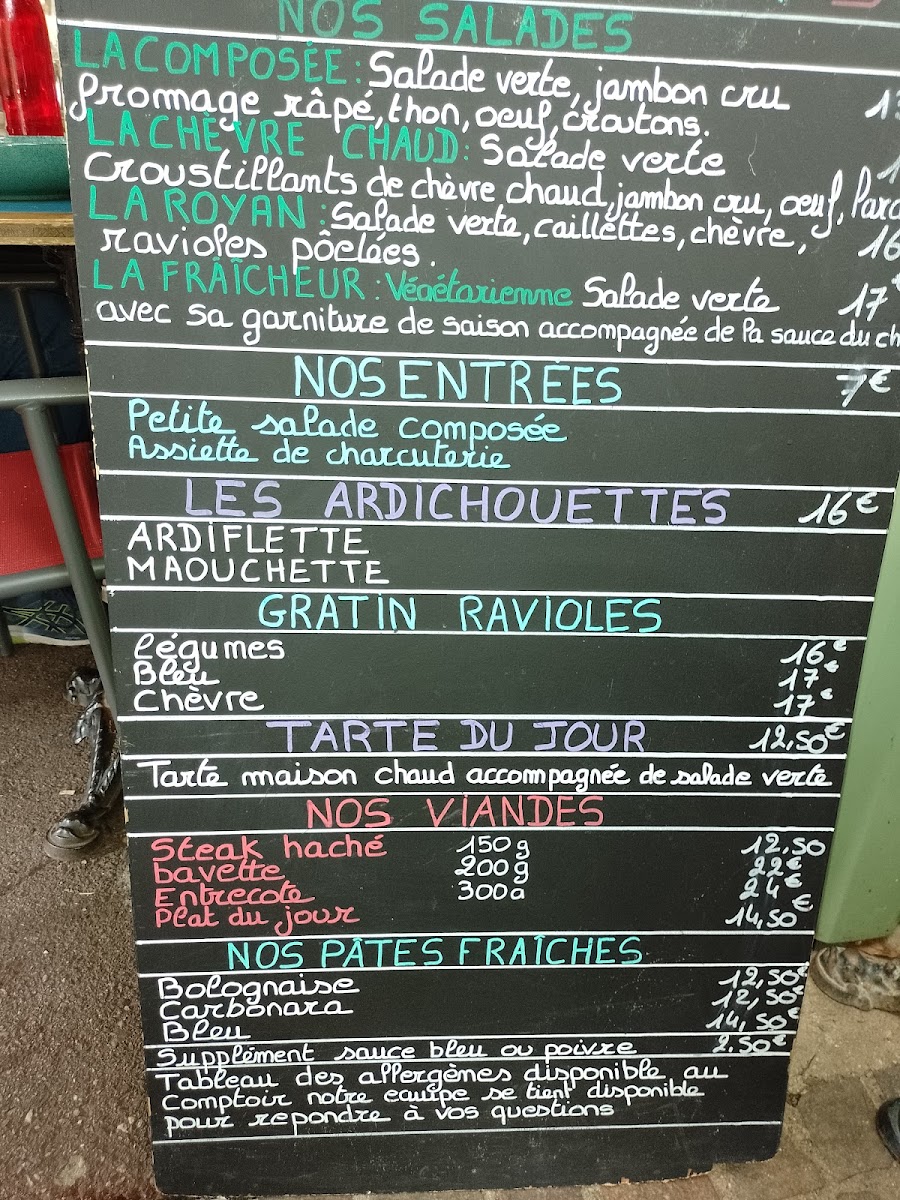 NOS SALADES
LA COMPOSÉE : Salade verte, jambon cru
fromage râpé, thon, oeuf, croutons.
LA CHÈVRE CHAUD : Salade verte
Croustillants de chèvre chaud, jambon cru, oeuf,
LA ROYAN : Salade verte, caillettes, chèvre, 16
ravioles pôelées.
LA FRÂÎCHEUR : Végétarienne Salade verte 17€
avec sa garniture de saison accompagnée de la sauce du
NOS ENTRÉES 7€
Petite salade composée
Assiette de charcuterie
LES ARDICHOUETTES 16€
ARDIFLETTE
MAOUCHETTE
GRATIN RAVIOLES
légumes 16€
Bleu 17€
Chèvre 17€
TARTE DU JOUR 12,50€
Tarte maison chaud accompagnée de salade verte
NOS VIANDES
Steak haché 150g 12.50
bavette 200g 22€
Entrecote 300g 24€
Plat du jour 14,50€
NOS PÂTES FRAÎCHES
Bolognaise 12,50€
Carbonara 12,50€
Bleu 14,50€
Supplément sauce bleu ou poivre 2.50€
Tableau des allergèmes disponible au
Comptoir notre equipe se tient disponible
pour repondre à vos questions